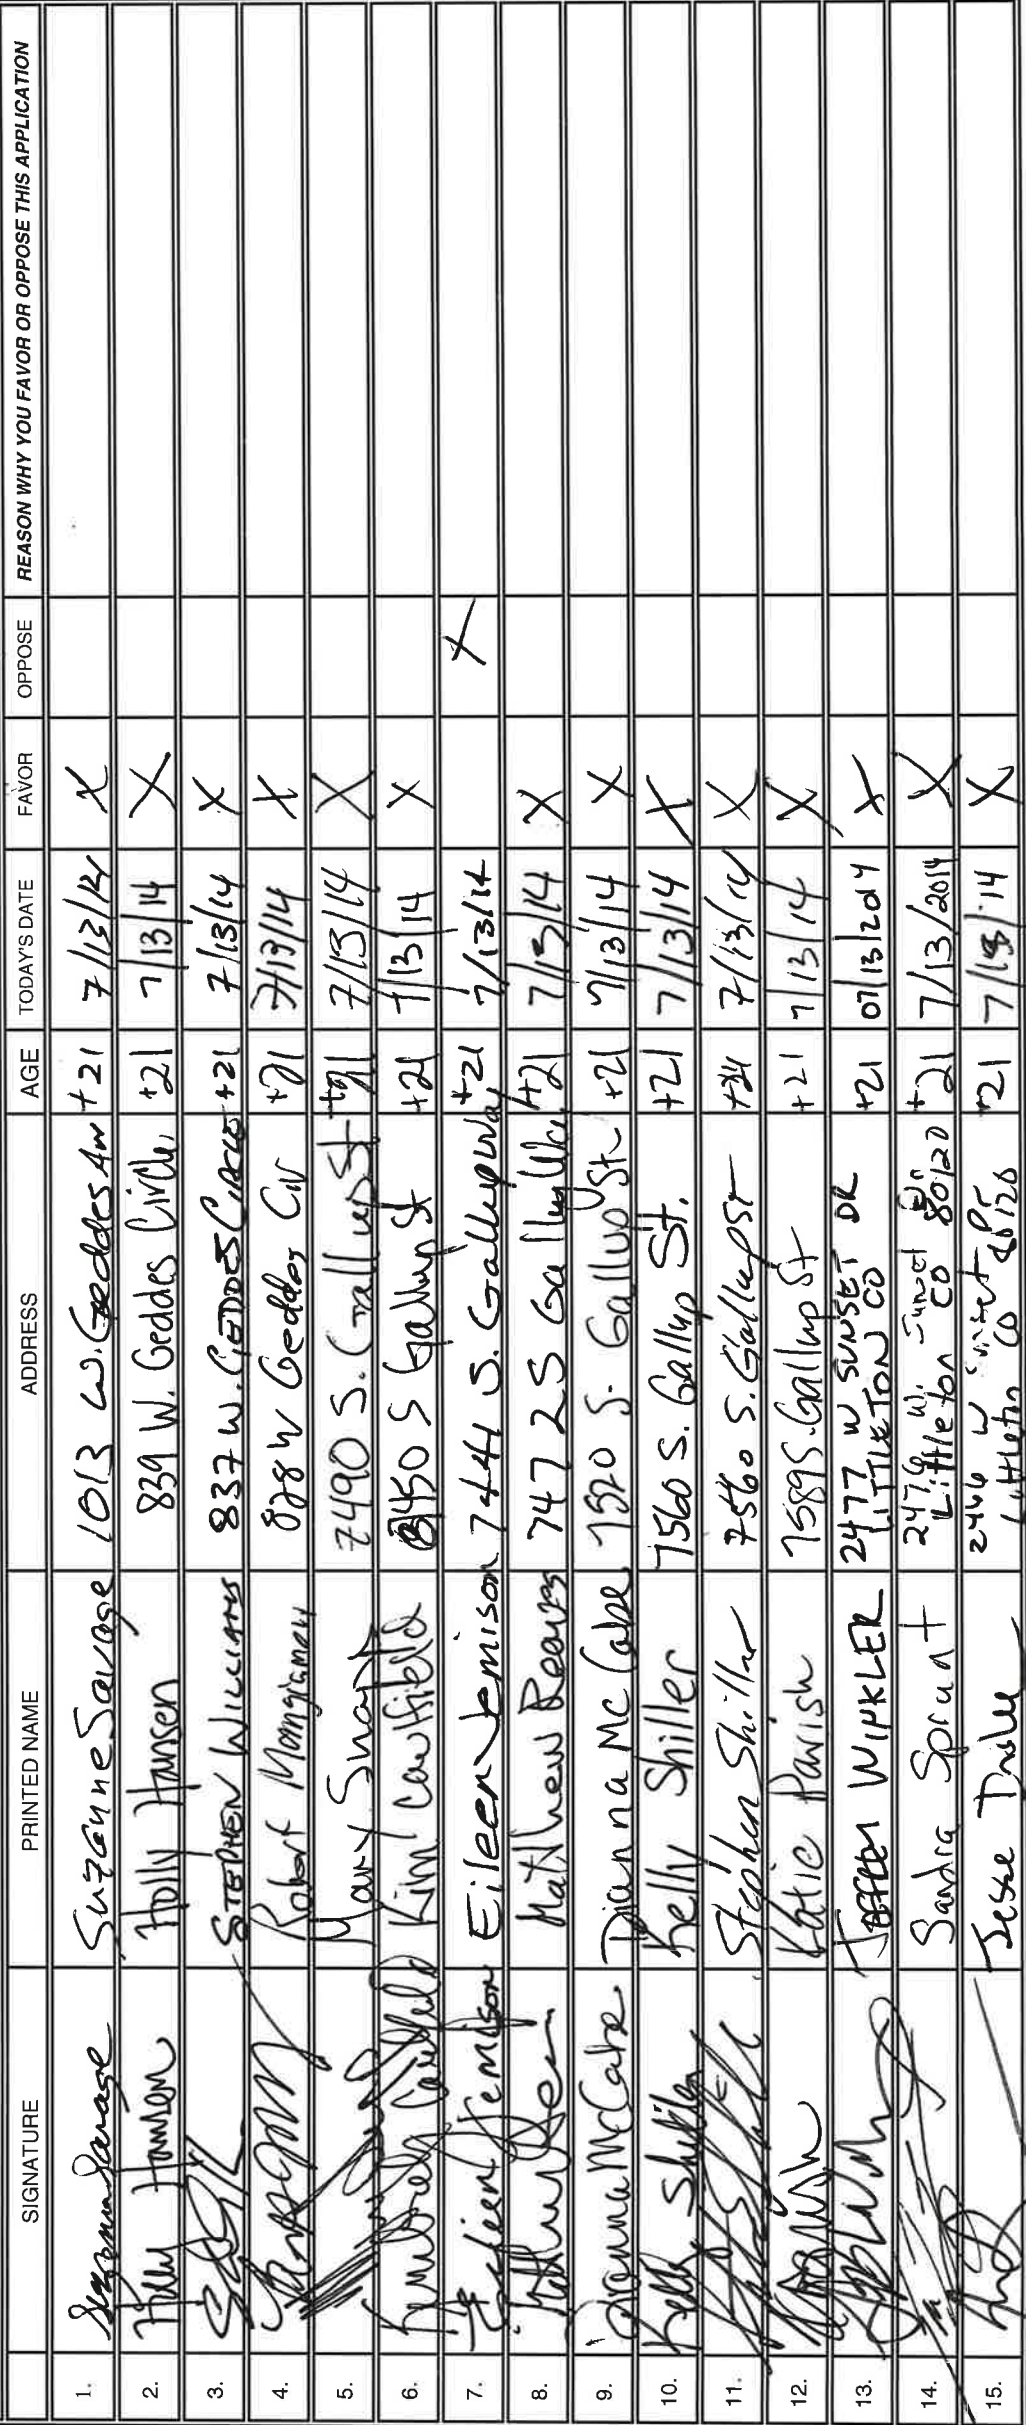 SIGNATURE PRINTED NAME ADDRESS AGE TODAY'S DATE FAVOR OPPOSE REASON WHY YOU FAVOR OR OPPOSE THIS APPLICATION
1. Suzanne Savage Suzanne Savage 1013 W. Geddes Av +21 7/13/14 X
2. Holly Hansen Holly Hansen 839 W. Geddes Circle +21 7/13/14 X
3. STEPHEN WILLIAMS 837 W. GEDDES CIRCLE +21 7/13/14 X
4. Robert 828 W Geddes Cir +21 7/13/14 X
5. Mary 7490 S. Gallup St +21 7/13/14 X
6. Kim Cawlfield 8450 S Gallup St +21 7/13/14 X
7. Eileen Jemison Eileen Jemison 7441 S. Gallup Way +21 7/13/14 X
8. Matthew Reaves 7472 S Gallup Way +21 7/13/14 X
9. Dianna McCabe Dianna McCabe 7520 S. Gallup St +21 7/13/14 X
10. Kelly Shiller Kelly Shiller 7560 S. Gallup St. +21 7/13/14 X
11. Stephen Shiller 7560 S. Gallup St +21 7/13/14 X
12. Katie Parish 7589 S. Gallup St +21 7/13/14 X
13. WINKLER 2477 W SUNSET DR +21 07/13/2014 X
LITTLETON CO
14. Sandra Sprunt W. Sunset Dr +21 7/13/2014 X
Littleton CO 80120
15. Jesse 2466 W Sunset Dr +21 7/13/14 X
Littleton CO 80120